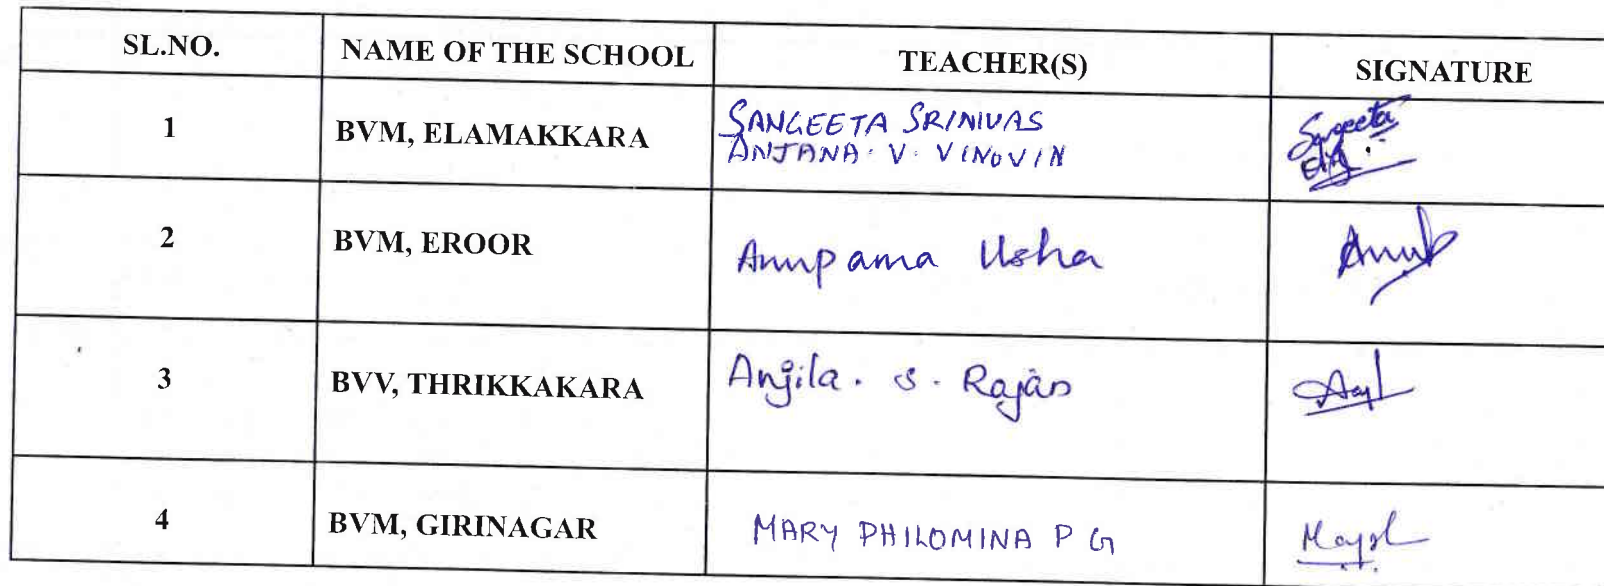 SL.NO. NAME OF THE SCHOOL TEACHER(S) SIGNATURE
1 BVM, ELAMAKKARA SANGEETA SRINIVAS Sangeeta
ANJANA. V. VINOVIN
2 BVM, EROOR Anupama Usha
3 BVV, THRIKKAKARA Anjila. S. Rajan
4 BVM, GIRINAGAR MARY PHILOMINA P G